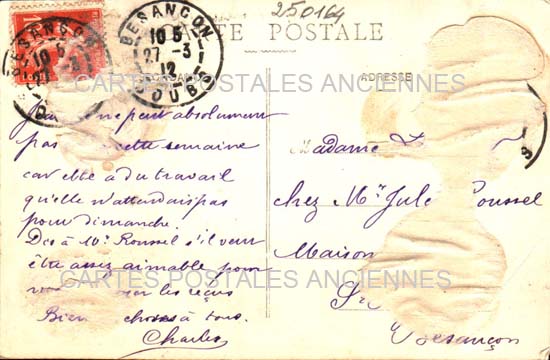 250164
BESANÇON
10 5
27-3
12
DOUBS
BESANÇON
10 5
CARTE POSTALE
CARTES POSTALES ANCIENNES
ADRESSE
ne peut absolument
pas cette semaine
car elle a du travail
qu'elle n'attendait pas
pour dimanche.
Des à Mr Roussel s'il veut
être assez aimable pour
les reçus
Bien choses à tous.
Charles
Madame
chez Mr Jule Roussel
Maison
Besançon
CARTES POSTALES ANCIENNES